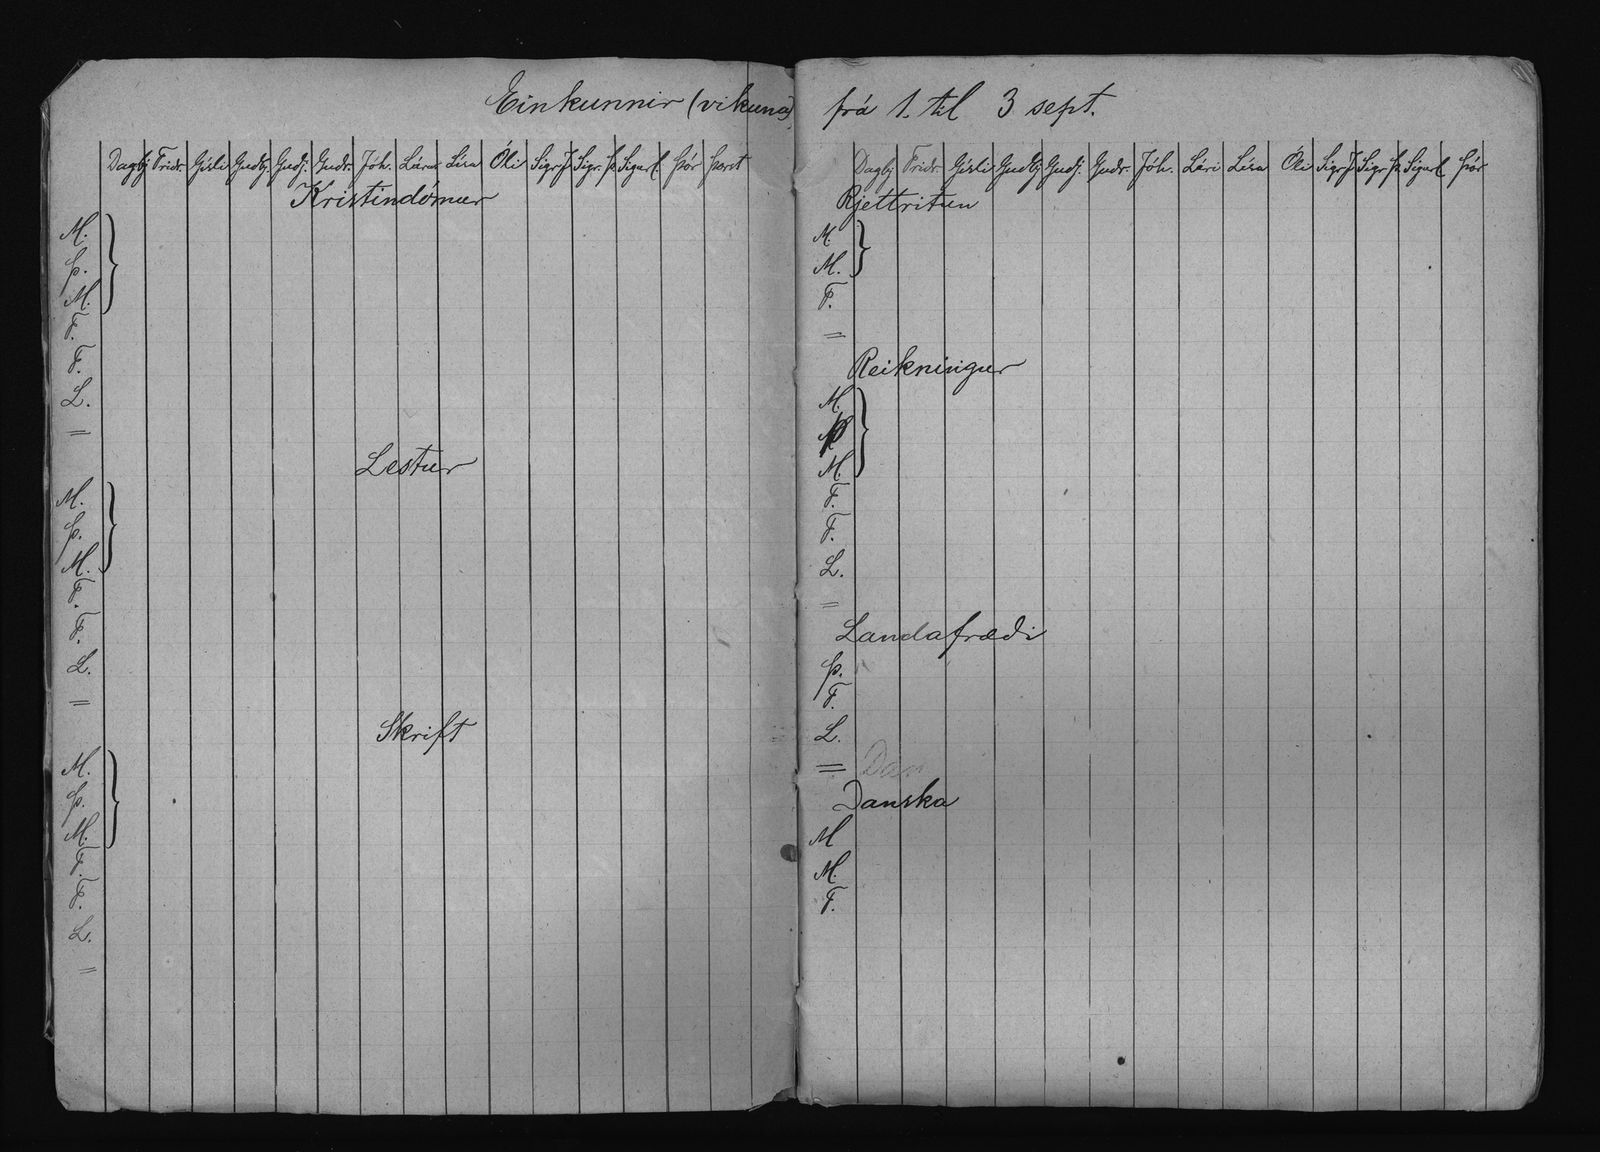 Einkunnir (vikuna) frá 1. til 3 sept.
Dagbj Fridr. Gísli Gudbj. Gudj. Gudr. Jóh. Lárus Lísa Óli Sigr J Sigr. Þ. Sigurl. Þór Þorst
Kristindómur
M.
Þ.
M.
F.
F.
L.
=
Lestur
M.
Þ.
M.
F.
F.
L.
=
Skrift
M.
Þ.
M.
F.
F.
L.
=
Dagbj Fridr. Gísli Gudbj Gudj. Gudr. Jóh. Lári Lísa Óli Sigr J Sigr Þ Sigurl Þór
Rjettritun
M
M.
F.
=
Reikningur
M.
M.
F.
F.
L.
=
Landafrædi
Þ.
F.
L.
= Dan
Danska
M
M.
F.